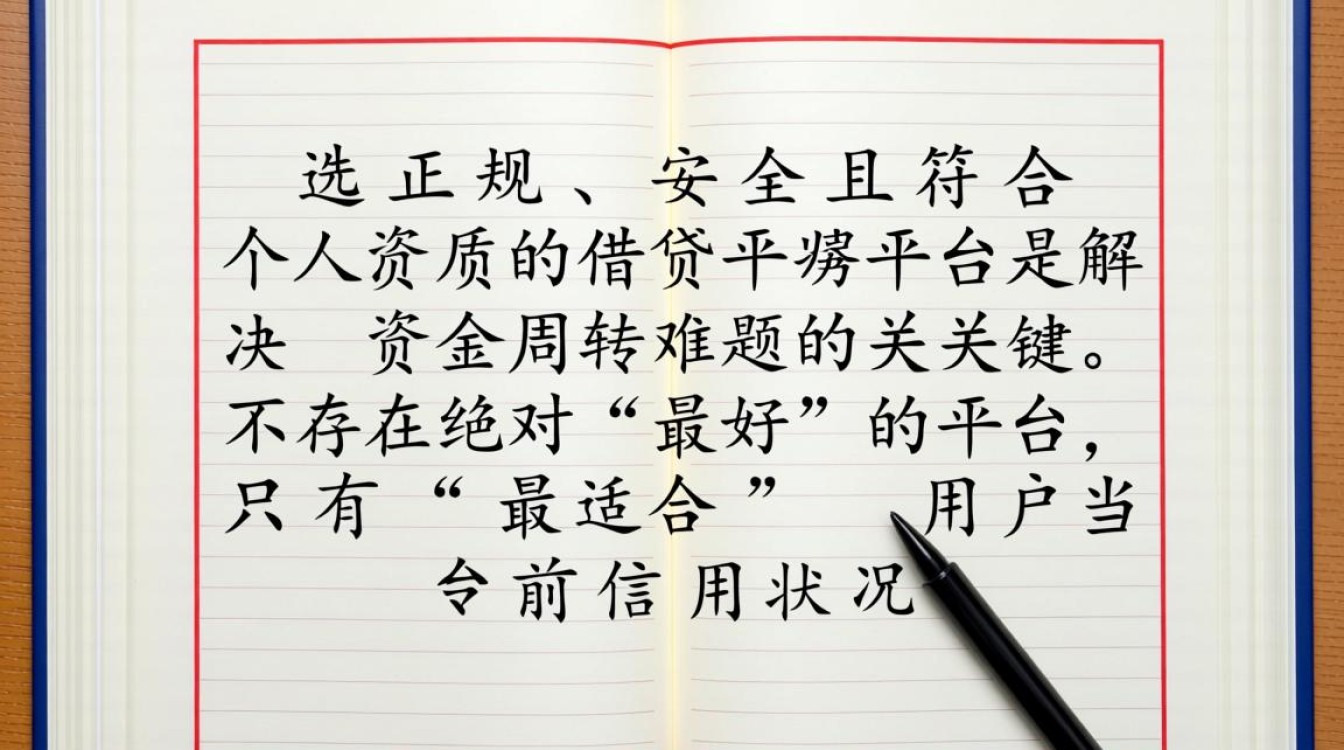 选正规、安全且符合
个人资质的借贷平平台是解
决 资金周转难题的关关键。
不存在绝对“最好”的平台，
只有“最适合” 用户当
前信用状况